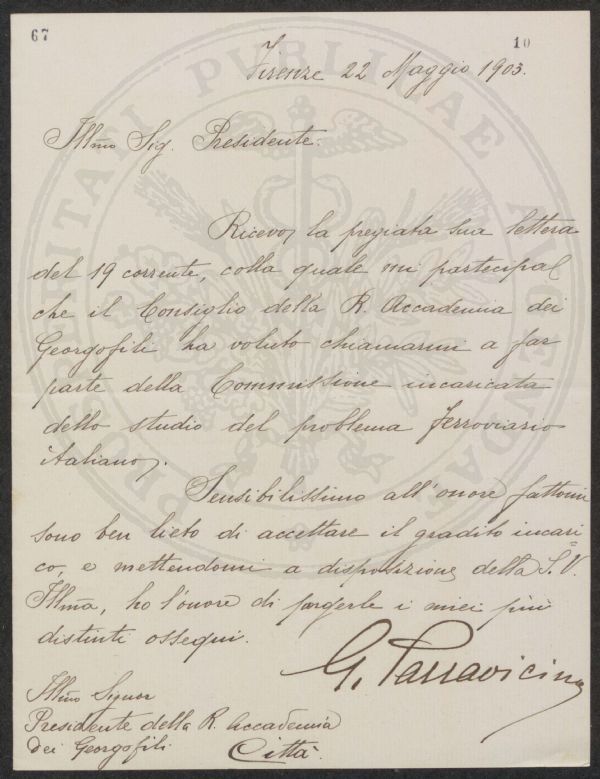 67
10
Firenze 22 Maggio 1903.
Illmo Sig. Presidente.
Ricevo la pregiata sua lettera
del 19 corrente, colla quale mi partecipa
che il Consiglio della R. Accademia dei
Georgofili ha voluto chiamarmi a far
parte della Commissione incaricata
dello studio del problema ferroviario
italiano.
Sensibilissimo all'onore fattomi
sono ben lieto di accettare il gradito incari=
co, e mettendomi a disposizione della S. V.
Illma, ho l'onore di porgerle i miei più
distinti ossequi.
G. Parravicino
Illmo Signor
Presidente della R. Accademia
dei Georgofili
Città
PROSPERITATI PUBLICAE AUGENDAE